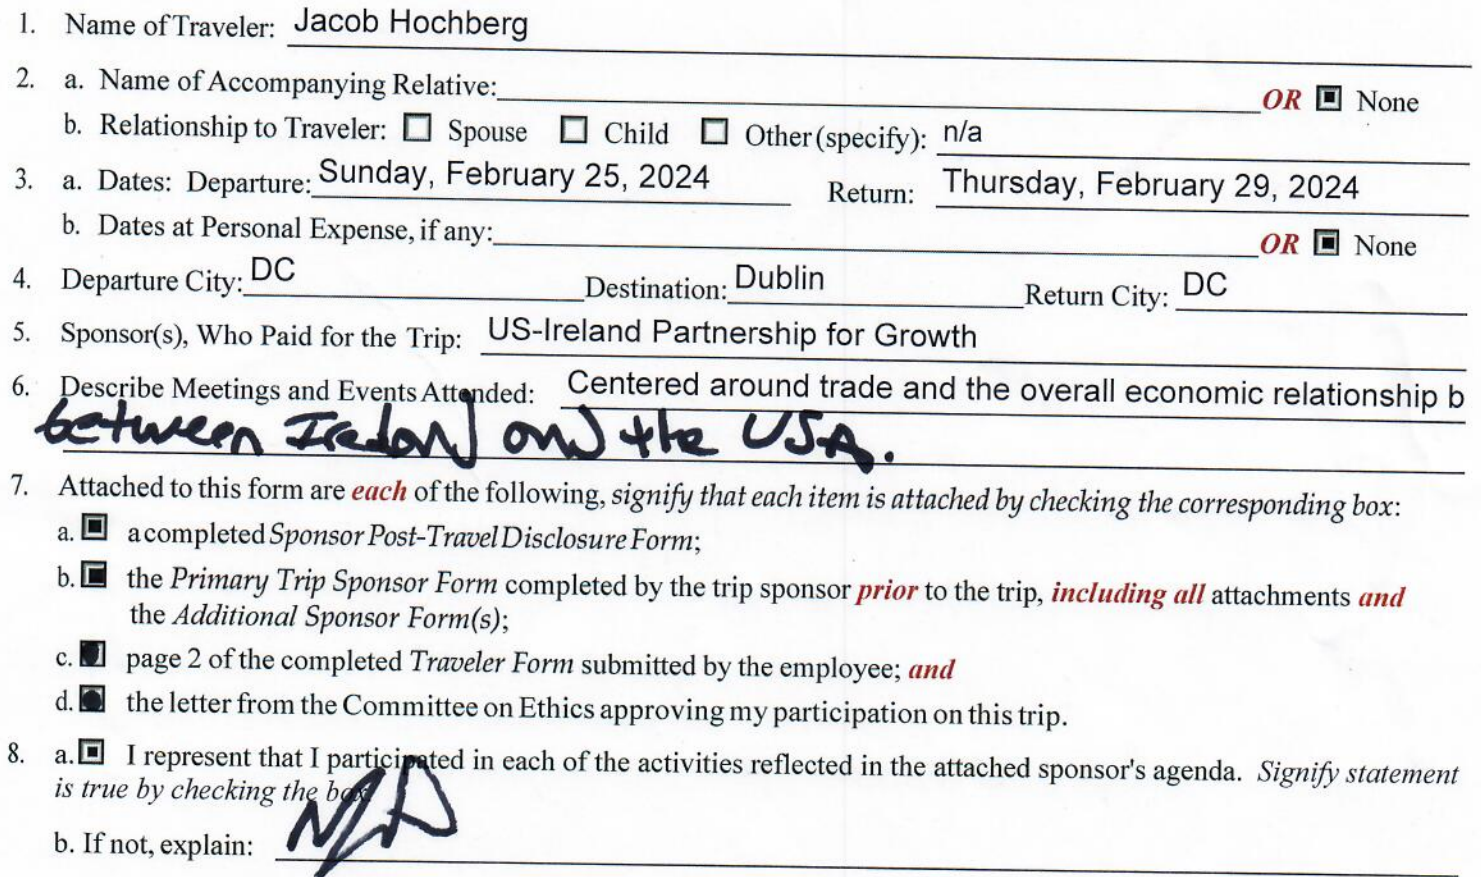 1. Name of Traveler: Jacob Hochberg
2. a. Name of Accompanying Relative: OR None
b. Relationship to Traveler: Spouse Child Other (specify): n/a
3. a. Dates: Departure: Sunday, February 25, 2024 Return: Thursday, February 29, 2024
b. Dates at Personal Expense, if any: OR None
4. Departure City: DC Destination: Dublin Return City: DC
5. Sponsor(s), Who Paid for the Trip: US-Ireland Partnership for Growth
6. Describe Meetings and Events Attended: Centered around trade and the overall economic relationship b
between Ireland and the USA.
7. Attached to this form are each of the following, signify that each item is attached by checking the corresponding box:
a. a completed Sponsor Post-Travel Disclosure Form;
b. the Primary Trip Sponsor Form completed by the trip sponsor prior to the trip, including all attachments and
the Additional Sponsor Form(s);
c. page 2 of the completed Traveler Form submitted by the employee; and
d. the letter from the Committee on Ethics approving my participation on this trip.
8. a. I represent that I participated in each of the activities reflected in the attached sponsor's agenda. Signify statement
is true by checking the box
b. If not, explain: N/A